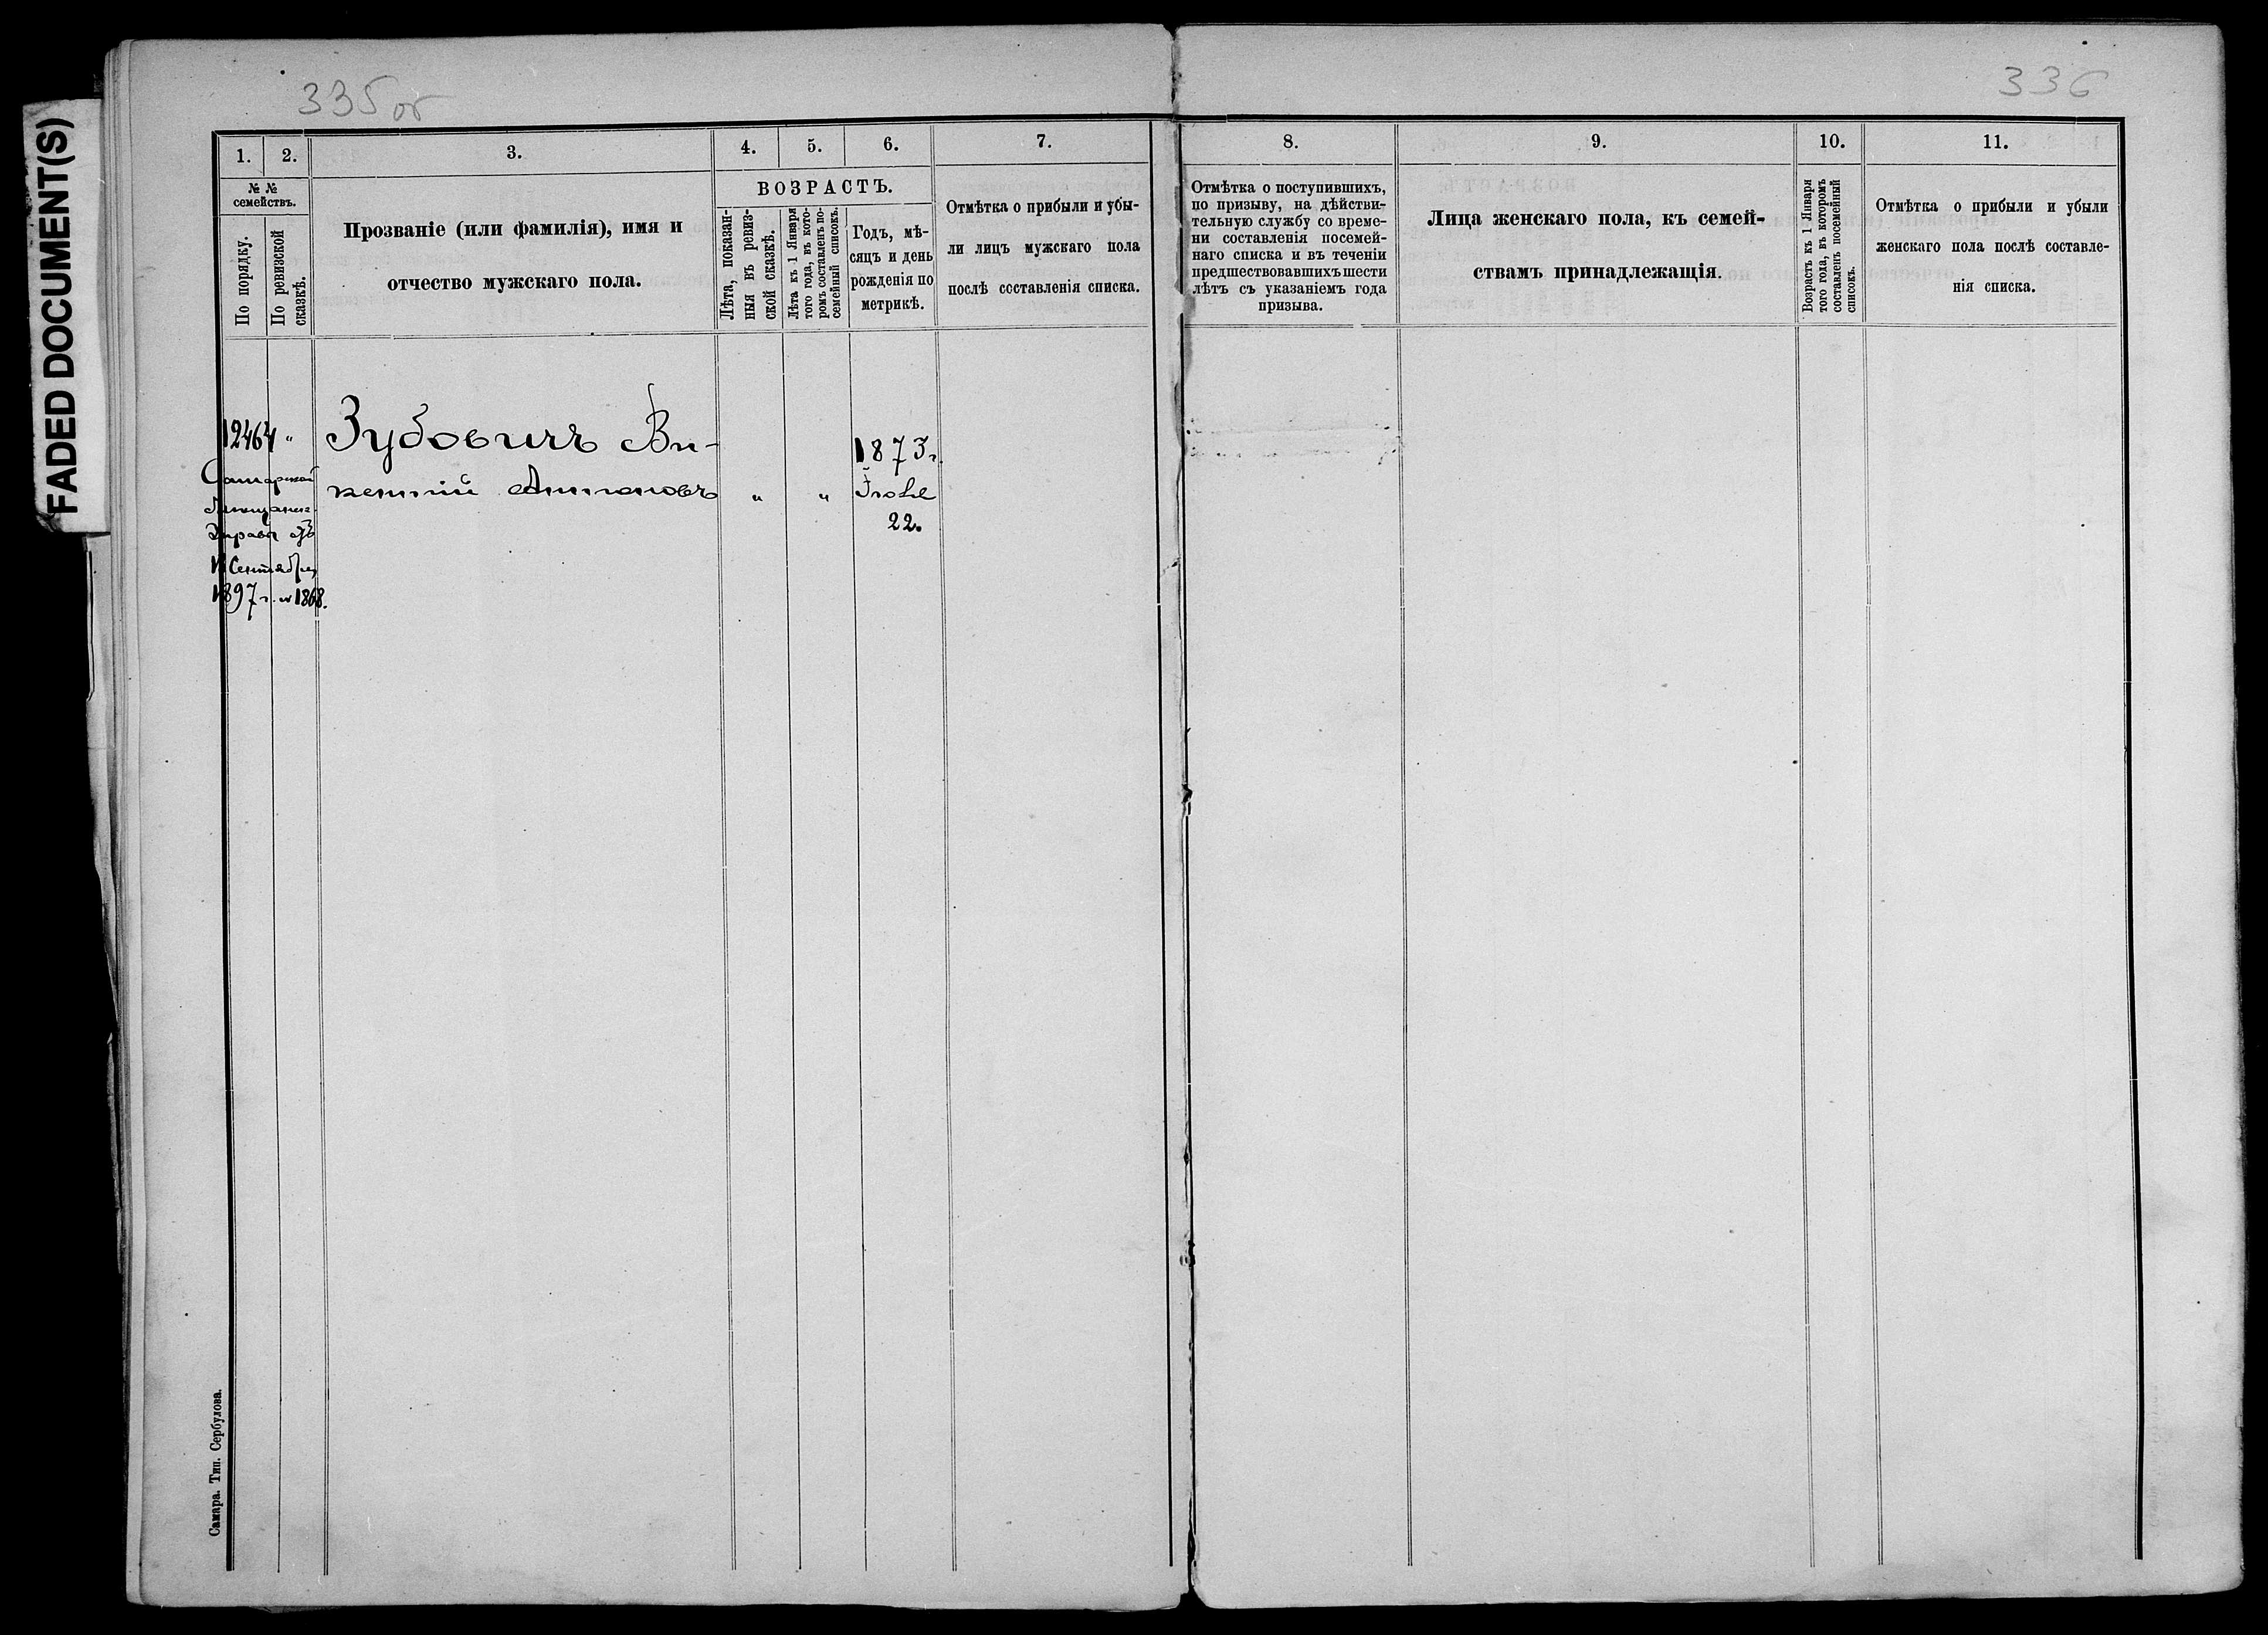 FADED DOCUMENT(S)
335 об
336
1.
2.
3.
4.
5.
6.
7.
8.
9.
10.
11.
№ №
семействъ.
По порядку.
По ревизской
сказкѣ.
Прозваніе (или фамилія), имя и
отчество мужскаго пола.
ВОЗРАСТЪ.
Лѣта, показан-
ныя въ ревиз-
ской сказкѣ.
Лѣта къ 1 Января
того года, въ кото-
ромъ составленъ по-
семейный списокъ.
Годъ, мѣ-
сяцъ и день
рожденія по
метрикѣ.
Отмѣтка о прибыли и убы-
ли лицъ мужскаго пола
послѣ составленія списка.
Отмѣтка о поступившихъ,
по призыву, на дѣйстви-
тельную службу со време-
ни составленія посемей-
наго списка и въ теченіи
предшествовавшихъ шести
лѣтъ съ указаніемъ года
призыва.
Лица женскаго пола, къ семей-
ствамъ принадлежащія.
Возрастъ къ 1 Января
того года, въ которомъ
составленъ посемейный
списокъ.
Отмѣтка о прибыли и убыли
женскаго пола послѣ составле-
нія списка.
12464 "
Зубовичъ Ви-
кентій Антоновъ
" "
1873 г.
Іюля
22.
Самарской
Управы
Сентября
1897 г. № 1868.
Самара. Тип. Сербулова.